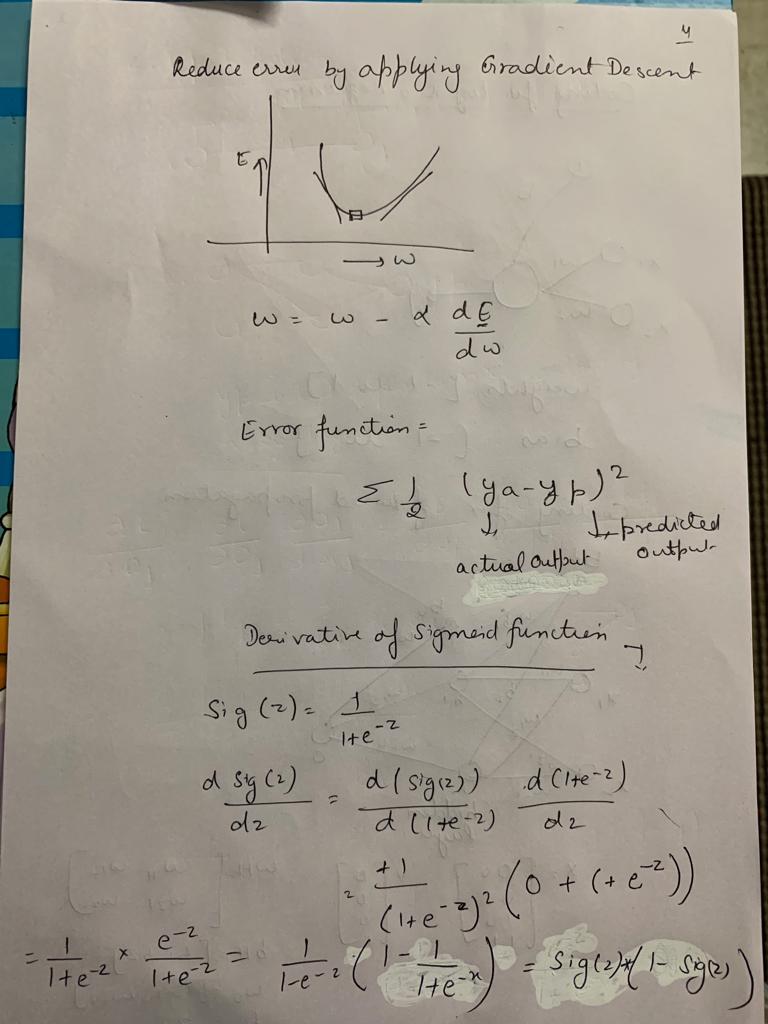 4
Reduce error by applying Gradient Descent
E ↑
→ w
w = w - α dE/dw
Error function =
Σ 1/2 (ya-yp)²
↓ ↓ predicted
actual output output
Derivative of Sigmoid function
Sig (z) = 1/(1+e^-z)
d Sig (z)/dz = d (Sig(z))/d (1+e^-z) . d (1+e^-z)/dz
= +1/(1+e^-z)² (0 + (+ e^-z))
= 1/(1+e^-z) × e^-z/(1+e^-z) = 1/(1-e^-z) (1 - 1/(1+e^-x)) = Sig(z)*(1- Sig(z))